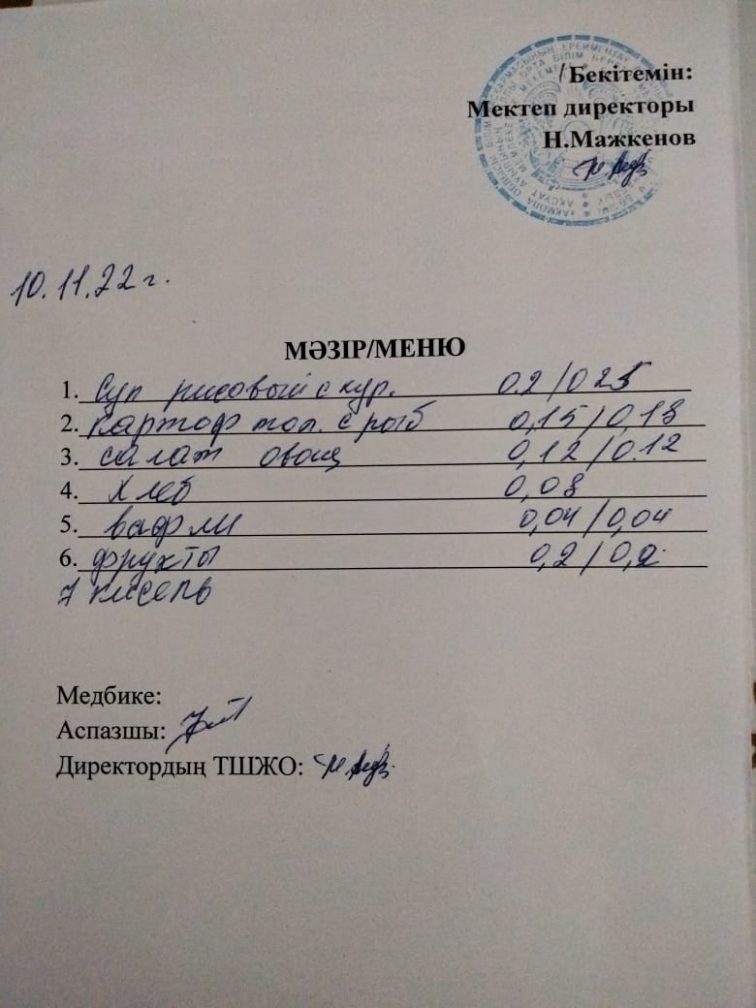 Бекітемін:
Мектеп директоры
Н.Мажкенов
10.11.22 г.
МӘЗІР/МЕНЮ
1. Суп рисовый с кур. 0.2/0.25
2. картоф тол. с рыб 0,15/0,18
3. салат овощ 0,12/0.12
4. хлеб 0,08
5. вафли 0,04/0,04
6. фрукты 0,2/0,2.
7 кисель
Медбике:
Аспазшы:
Директордың ТШЖО: